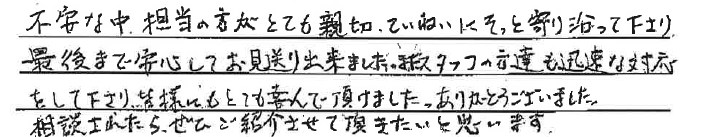 不安な中、担当の方がとても親切、ていねいにそっと寄り沿って下さり
最後まで安心してお見送り出来ました。スタッフの方達も迅速な対応
をして下さり、皆様にもとても喜んで頂けました。ありがとうございました。
相談されたら、ぜひご紹介させて頂きたいと思います。